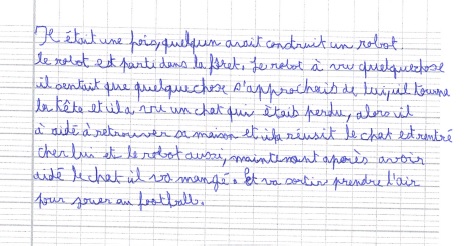 Il était une fois, quelqun avait construit un robot.
le robot est parti dans la forêt. Le robot à vu quelque chose
il sentait que quelque chose s'approchais de lui, il tourne
la tête et il a vu un chat qui étais perdu, alors il
à aidé à retrouver sa maison et il a réussit le chat est rentré
cher lui et le robot aussi, maintenant aporès avoir
aidé le chat il va mangé. Et va sortir prendre l'air
pour jouer au football.